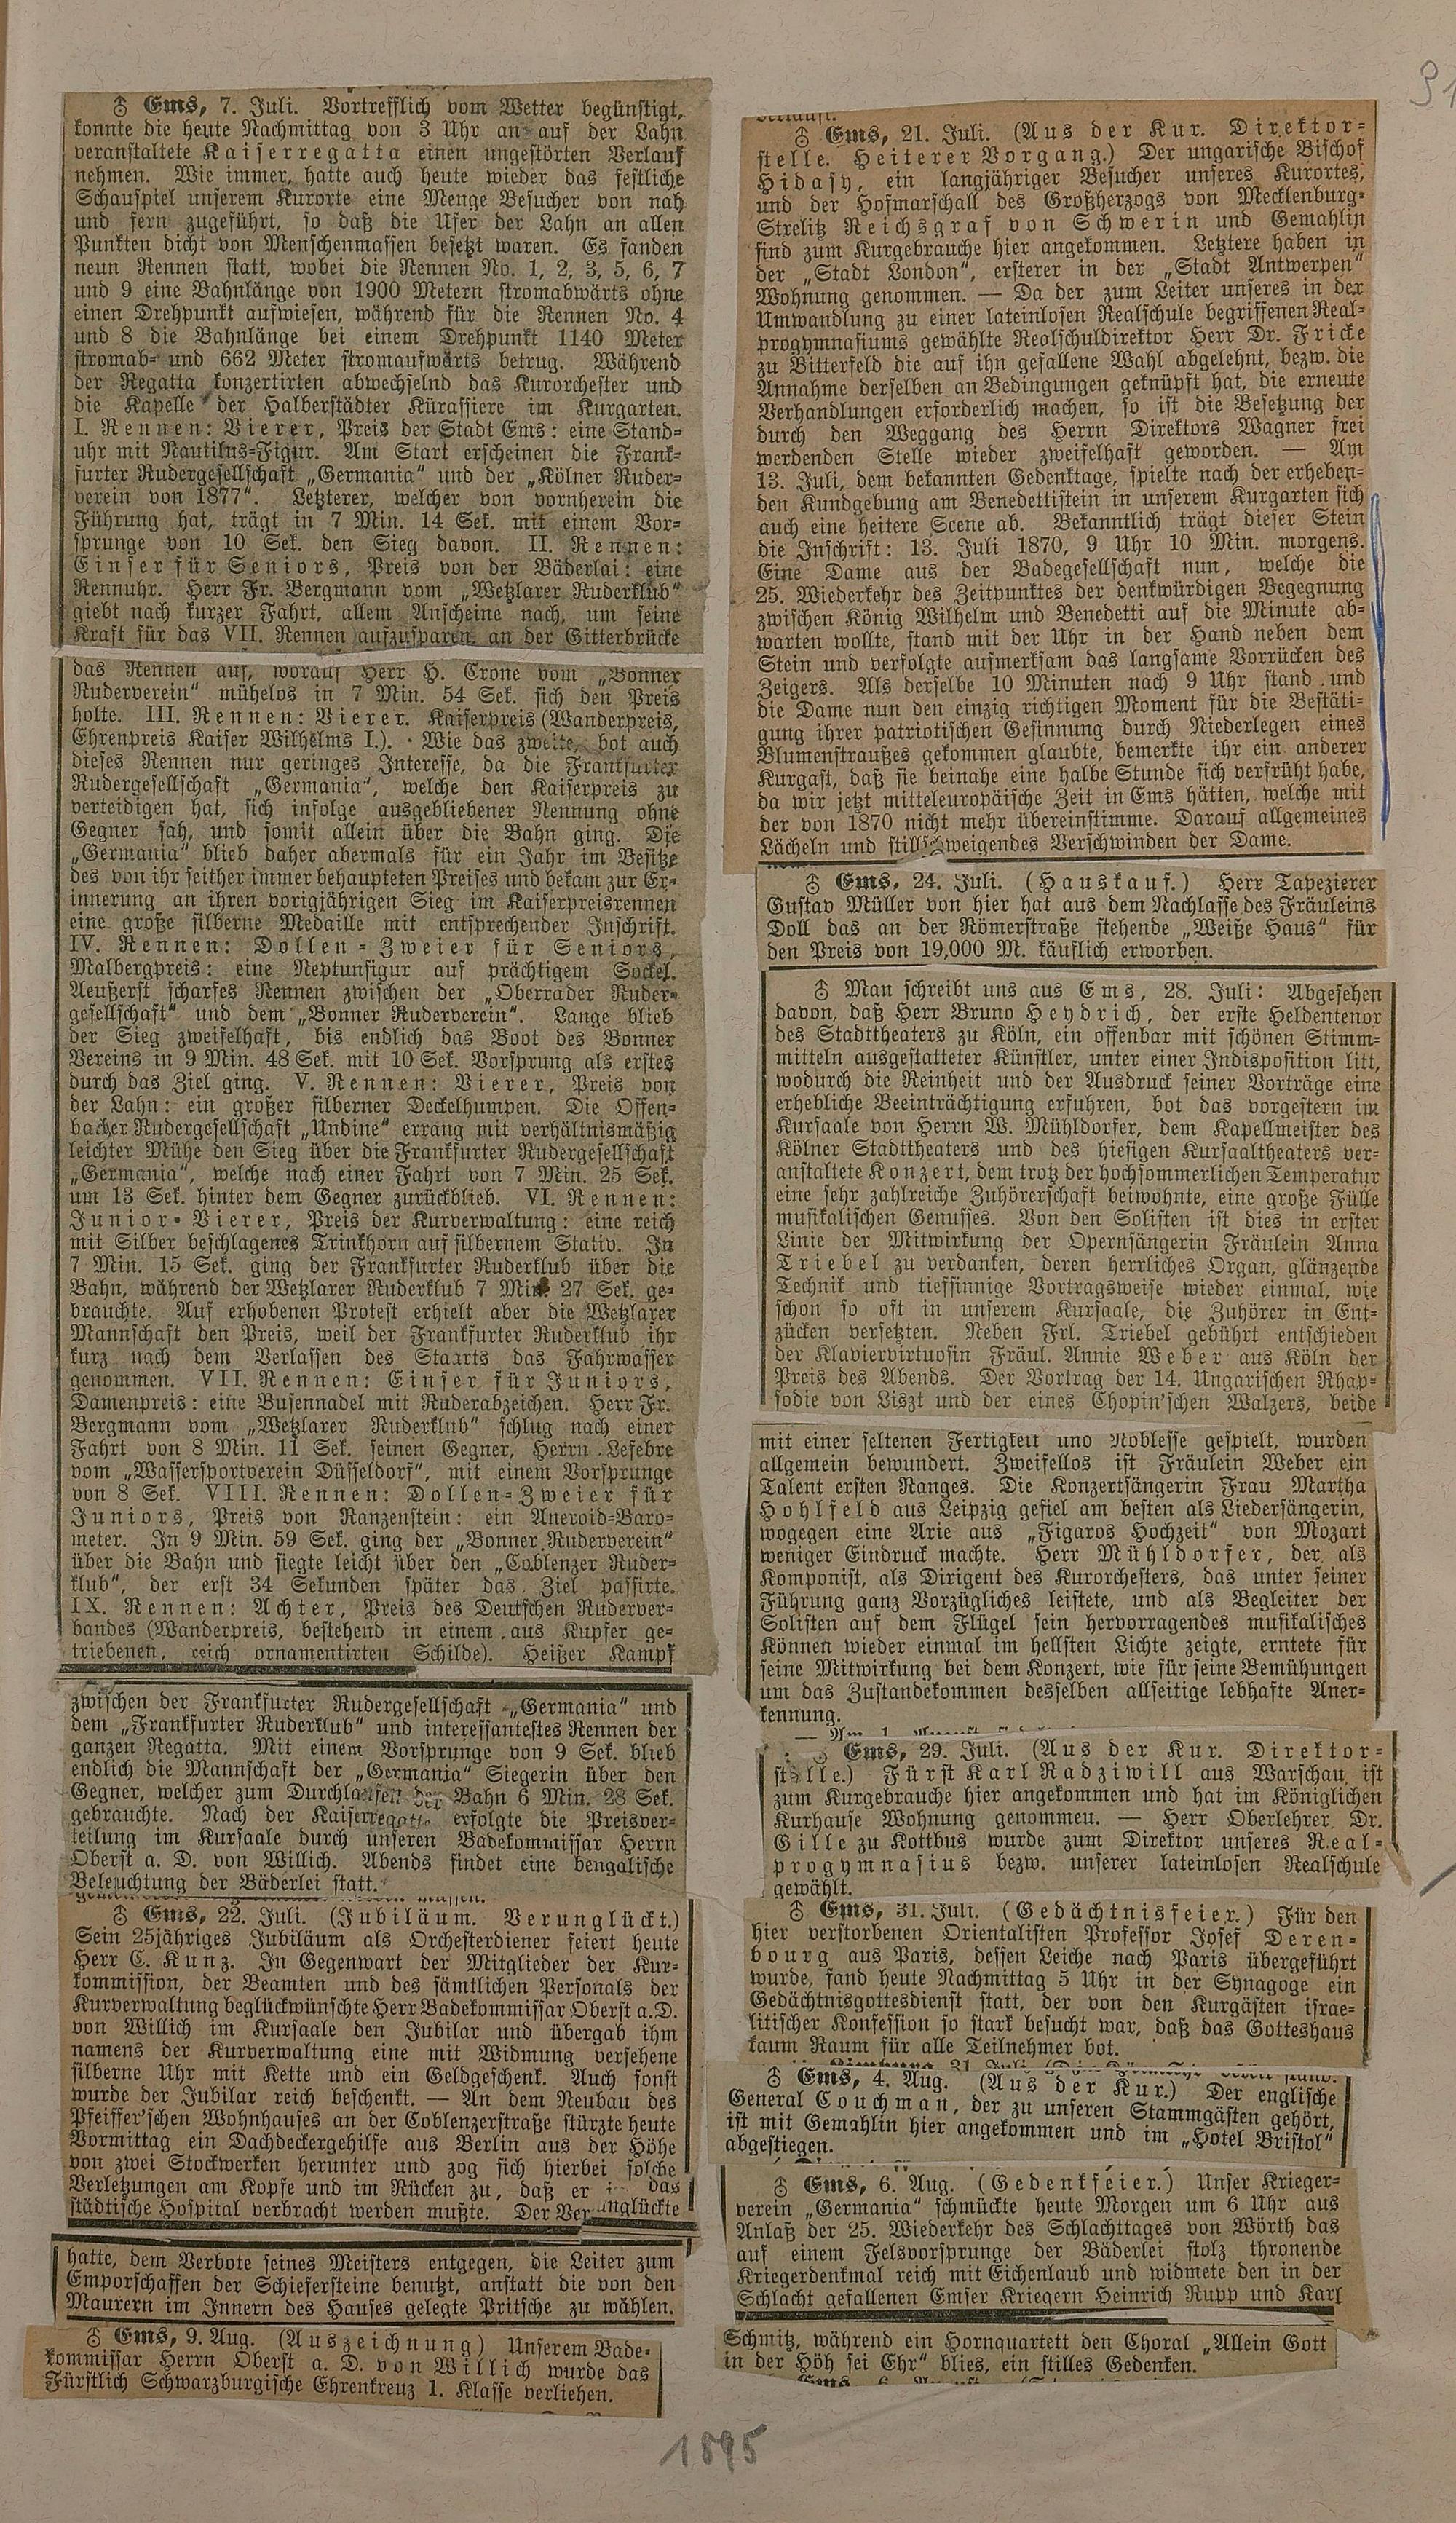 ♁ Ems, 7. Juli. Vortrefflich vom Wetter begünstigt,
konnte die heute Nachmittag von 3 Uhr an auf der Lahn
veranstaltete Kaiserregatta einen ungestörten Verlauf
nehmen. Wie immer, hatte auch heute wieder das festliche
Schauspiel unserem Kurorte eine Menge Besucher von nah
und fern zugeführt, so daß die Ufer der Lahn an allen
Punkten dicht von Menschenmassen besetzt waren. Es fanden
neun Rennen statt, wobei die Rennen No. 1, 2, 3, 5, 6, 7
und 9 eine Bahnlänge von 1900 Metern stromabwärts ohne
einen Drehpunkt aufwiesen, während für die Rennen No. 4
und 8 die Bahnlänge bei einem Drehpunkt 1140 Meter
stromab- und 662 Meter stromaufwärts betrug. Während
der Regatta konzertirten abwechselnd das Kurorchester und
die Kapelle der Halberstädter Kürassiere im Kurgarten.
I. Rennen: Vierer, Preis der Stadt Ems: eine Stand-
uhr mit Nautilus-Figur. Am Start erscheinen die Frank-
furter Rudergesellschaft „Germania“ und der „Kölner Ruder-
verein von 1877“. Letzterer, welcher von vornherein die
Führung hat, trägt in 7 Min. 14 Sek. mit einem Vor-
sprunge von 10 Sek. den Sieg davon. II. Rennen:
Einser für Seniors, Preis von der Bäderlai: eine
Rennuhr. Herr Fr. Bergmann vom „Wetzlarer Ruderklub“
giebt nach kurzer Fahrt, allem Anscheine nach, um seine
Kraft für das VII. Rennen aufzusparen, an der Gitterbrücke
das Rennen auf, worauf Herr H. Crone vom „Bonner
Ruderverein“ mühelos in 7 Min. 54 Sek. sich den Preis
holte. III. Rennen: Vierer. Kaiserpreis (Wanderpreis,
Ehrenpreis Kaiser Wilhelms I.). Wie das zweite, bot auch
dieses Rennen nur geringes Interesse, da die Frankfurter
Rudergesellschaft „Germania“, welche den Kaiserpreis zu
verteidigen hat, sich infolge ausgebliebener Nennung ohne
Gegner sah, und somit allein über die Bahn ging. Die
„Germania“ blieb daher abermals für ein Jahr im Besitze
des von ihr seither immer behaupteten Preises und bekam zur Er-
innerung an ihren vorigjährigen Sieg im Kaiserpreisrennen
eine große silberne Medaille mit entsprechender Inschrift.
IV. Rennen: Dollen-Zweier für Seniors,
Malbergpreis: eine Neptunfigur auf prächtigem Sockel.
Aeußerst scharfes Rennen zwischen der „Oberrader Ruder-
gesellschaft“ und dem „Bonner Ruderverein“. Lange blieb
der Sieg zweifelhaft, bis endlich das Boot des Bonner
Vereins in 9 Min. 48 Sek. mit 10 Sek. Vorsprung als erstes
durch das Ziel ging. V. Rennen: Vierer, Preis von
der Lahn: ein großer silberner Deckelhumpen. Die Offen-
bacher Rudergesellschaft „Undine“ errang mit verhältnismäßig
leichter Mühe den Sieg über die Frankfurter Rudergesellschaft
„Germania“, welche nach einer Fahrt von 7 Min. 25 Sek.
um 13 Sek. hinter dem Gegner zurückblieb. VI. Rennen:
Junior-Vierer, Preis der Kurverwaltung: eine reich
mit Silber beschlagenes Trinkhorn auf silbernem Stativ. In
7 Min. 15 Sek. ging der Frankfurter Ruderklub über die
Bahn, während der Wetzlarer Ruderklub 7 Min. 27 Sek. ge-
brauchte. Auf erhobenen Protest erhielt aber die Wetzlarer
Mannschaft den Preis, weil der Frankfurter Ruderklub ihr
kurz nach dem Verlassen des Staarts das Fahrwasser
genommen. VII. Rennen: Einser für Juniors,
Damenpreis: eine Busennadel mit Ruderabzeichen. Herr Fr.
Bergmann vom „Wetzlarer Ruderklub“ schlug nach einer
Fahrt von 8 Min. 11 Sek. seinen Gegner, Herrn Lefebre
vom „Wassersportverein Düsseldorf“, mit einem Vorsprunge
von 8 Sek. VIII. Rennen: Dollen-Zweier für
Juniors, Preis von Ranzenstein: ein Aneroid-Baro-
meter. In 9 Min. 59 Sek. ging der „Bonner Ruderverein“
über die Bahn und siegte leicht über den „Coblenzer Ruder-
klub“, der erst 34 Sekunden später das Ziel passirte.
IX. Rennen: Achter, Preis des Deutschen Ruderver-
bandes (Wanderpreis, bestehend in einem aus Kupfer ge-
triebenen, reich ornamentirten Schilde). Heißer Kampf
zwischen der Frankfurter Rudergesellschaft „Germania“ und
dem „Frankfurter Ruderklub“ und interessantestes Rennen der
ganzen Regatta. Mit einem Vorsprunge von 9 Sek. blieb
endlich die Mannschaft der „Germania“ Siegerin über den
Gegner, welcher zum Durchlaufen der Bahn 6 Min. 28 Sek.
gebrauchte. Nach der Kaiserregatta erfolgte die Preisver-
teilung im Kursaale durch unseren Badekommissar Herrn
Oberst a. D. von Willich. Abends findet eine bengalische
Beleuchtung der Bäderlei statt.
♁ Ems, 22. Juli. (Jubiläum. Verunglückt.)
Sein 25jähriges Jubiläum als Orchesterdiener feiert heute
Herr C. Kunz. In Gegenwart der Mitglieder der Kur-
kommission, der Beamten und des sämtlichen Personals der
Kurverwaltung beglückwünschte Herr Badekommissar Oberst a.D.
von Willich im Kursaale den Jubilar und übergab ihm
namens der Kurverwaltung eine mit Widmung versehene
silberne Uhr mit Kette und ein Geldgeschenk. Auch sonst
wurde der Jubilar reich beschenkt. — An dem Neubau des
Pfeiffer'schen Wohnhauses an der Coblenzerstraße stürzte heute
Vormittag ein Dachdeckergehilfe aus Berlin aus der Höhe
von zwei Stockwerken herunter und zog sich hierbei solche
Verletzungen am Kopfe und im Rücken zu, daß er in das
städtische Hospital verbracht werden mußte. Der Verunglückte
hatte, dem Verbote seines Meisters entgegen, die Leiter zum
Emporschaffen der Schiefersteine benutzt, anstatt die von den
Maurern im Innern des Hauses gelegte Pritsche zu wählen.
♁ Ems, 9. Aug. (Auszeichnung) Unserem Bade-
kommissar Herrn Oberst a. D. von Willich wurde das
Fürstlich Schwarzburgische Ehrenkreuz 1. Klasse verliehen.
♁ Ems, 21. Juli. (Aus der Kur. Direktor-
stelle. Heiterer Vorgang.) Der ungarische Bischof
Hidasy, ein langjähriger Besucher unseres Kurortes,
und der Hofmarschall des Großherzogs von Mecklenburg-
Strelitz Reichsgraf von Schwerin und Gemahlin
sind zum Kurgebrauche hier angekommen. Letztere haben in
der „Stadt London“, ersterer in der „Stadt Antwerpen“
Wohnung genommen. — Da der zum Leiter unseres in der
Umwandlung zu einer lateinlosen Realschule begriffenen Real-
progymnasiums gewählte Realschuldirektor Herr Dr. Fricke
zu Bitterfeld die auf ihn gefallene Wahl abgelehnt, bezw. die
Annahme derselben an Bedingungen geknüpft hat, die erneute
Verhandlungen erforderlich machen, so ist die Besetzung der
durch den Weggang des Herrn Direktors Wagner frei
werdenden Stelle wieder zweifelhaft geworden. — Am
13. Juli, dem bekannten Gedenktage, spielte nach der erheben-
den Kundgebung am Benedettistein in unserem Kurgarten sich
auch eine heitere Scene ab. Bekanntlich trägt dieser Stein
die Inschrift: 13. Juli 1870, 9 Uhr 10 Min. morgens.
Eine Dame aus der Badegesellschaft nun, welche die
25. Wiederkehr des Zeitpunktes der denkwürdigen Begegnung
zwischen König Wilhelm und Benedetti auf die Minute ab-
warten wollte, stand mit der Uhr in der Hand neben dem
Stein und verfolgte aufmerksam das langsame Vorrücken des
Zeigers. Als derselbe 10 Minuten nach 9 Uhr stand und
die Dame nun den einzig richtigen Moment für die Bestäti-
gung ihrer patriotischen Gesinnung durch Niederlegen eines
Blumenstraußes gekommen glaubte, bemerkte ihr ein anderer
Kurgast, daß sie beinahe eine halbe Stunde sich verfrüht habe,
da wir jetzt mitteleuropäische Zeit in Ems hätten, welche mit
der von 1870 nicht mehr übereinstimme. Darauf allgemeines
Lächeln und stillschweigendes Verschwinden der Dame.
♁ Ems, 24. Juli. (Hauskauf.) Herr Tapezierer
Gustav Müller von hier hat aus dem Nachlasse des Fräuleins
Doll das an der Römerstraße stehende „Weiße Haus“ für
den Preis von 19,000 M. käuflich erworben.
♁ Man schreibt uns aus Ems, 28. Juli: Abgesehen
davon, daß Herr Bruno Heydrich, der erste Heldentenor
des Stadttheaters zu Köln, ein offenbar mit schönen Stimm-
mitteln ausgestatteter Künstler, unter einer Indisposition litt,
wodurch die Reinheit und der Ausdruck seiner Vorträge eine
erhebliche Beeinträchtigung erfuhren, bot das vorgestern im
Kursaale von Herrn W. Mühldorfer, dem Kapellmeister des
Kölner Stadttheaters und des hiesigen Kursaaltheaters ver-
anstaltete Konzert, dem trotz der hochsommerlichen Temperatur
eine sehr zahlreiche Zuhörerschaft beiwohnte, eine große Fülle
musikalischen Genusses. Von den Solisten ist dies in erster
Linie der Mitwirkung der Opernsängerin Fräulein Anna
Triebel zu verdanken, deren herrliches Organ, glänzende
Technik und tiefsinnige Vortragsweise wieder einmal, wie
schon so oft in unserem Kursaale, die Zuhörer in Ent-
zücken versetzten. Neben Frl. Triebel gebührt entschieden
der Klaviervirtuosin Fräul. Annie Weber aus Köln der
Preis des Abends. Der Vortrag der 14. Ungarischen Rhap-
sodie von Liszt und der eines Chopin'schen Walzers, beide
mit einer seltenen Fertigkeit und Noblesse gespielt, wurden
allgemein bewundert. Zweifellos ist Fräulein Weber ein
Talent ersten Ranges. Die Konzertsängerin Frau Martha
Hohlfeld aus Leipzig gefiel am besten als Liedersängerin,
wogegen eine Arie aus „Figaros Hochzeit“ von Mozart
weniger Eindruck machte. Herr Mühldorfer, der als
Komponist, als Dirigent des Kurorchesters, das unter seiner
Führung ganz Vorzügliches leistete, und als Begleiter der
Solisten auf dem Flügel sein hervorragendes musikalisches
Können wieder einmal im hellsten Lichte zeigte, erntete für
seine Mitwirkung bei dem Konzert, wie für seine Bemühungen
um das Zustandekommen desselben allseitige lebhafte Aner-
kennung.
♁ Ems, 29. Juli. (Aus der Kur. Direktor-
stelle.) Fürst Karl Radziwill aus Warschau ist
zum Kurgebrauche hier angekommen und hat im Königlichen
Kurhause Wohnung genommen. — Herr Oberlehrer Dr.
Gille zu Kottbus wurde zum Direktor unseres Real-
progymnasius bezw. unserer lateinlosen Realschule
gewählt.
♁ Ems, 31. Juli. (Gedächtnisfeier.) Für den
hier verstorbenen Orientalisten Professor Josef Deren-
bourg aus Paris, dessen Leiche nach Paris übergeführt
wurde, fand heute Nachmittag 5 Uhr in der Synagoge ein
Gedächtnisgottesdienst statt, der von den Kurgästen israe-
litischer Konfession so stark besucht war, daß das Gotteshaus
kaum Raum für alle Teilnehmer bot.
♁ Ems, 4. Aug. (Aus der Kur.) Der englische
General Couchman, der zu unseren Stammgästen gehört,
ist mit Gemahlin hier angekommen und im „Hotel Bristol“
abgestiegen.
♁ Ems, 6. Aug. (Gedenkfeier.) Unser Krieger-
verein „Germania“ schmückte heute Morgen um 6 Uhr aus
Anlaß der 25. Wiederkehr des Schlachttages von Wörth das
auf einem Felsvorsprunge der Bäderlei stolz thronende
Kriegerdenkmal reich mit Eichenlaub und widmete den in der
Schlacht gefallenen Emser Kriegern Heinrich Rupp und Karl
Schmitz, während ein Hornquartett den Choral „Allein Gott
in der Höh sei Ehr“ blies, ein stilles Gedenken.
1895